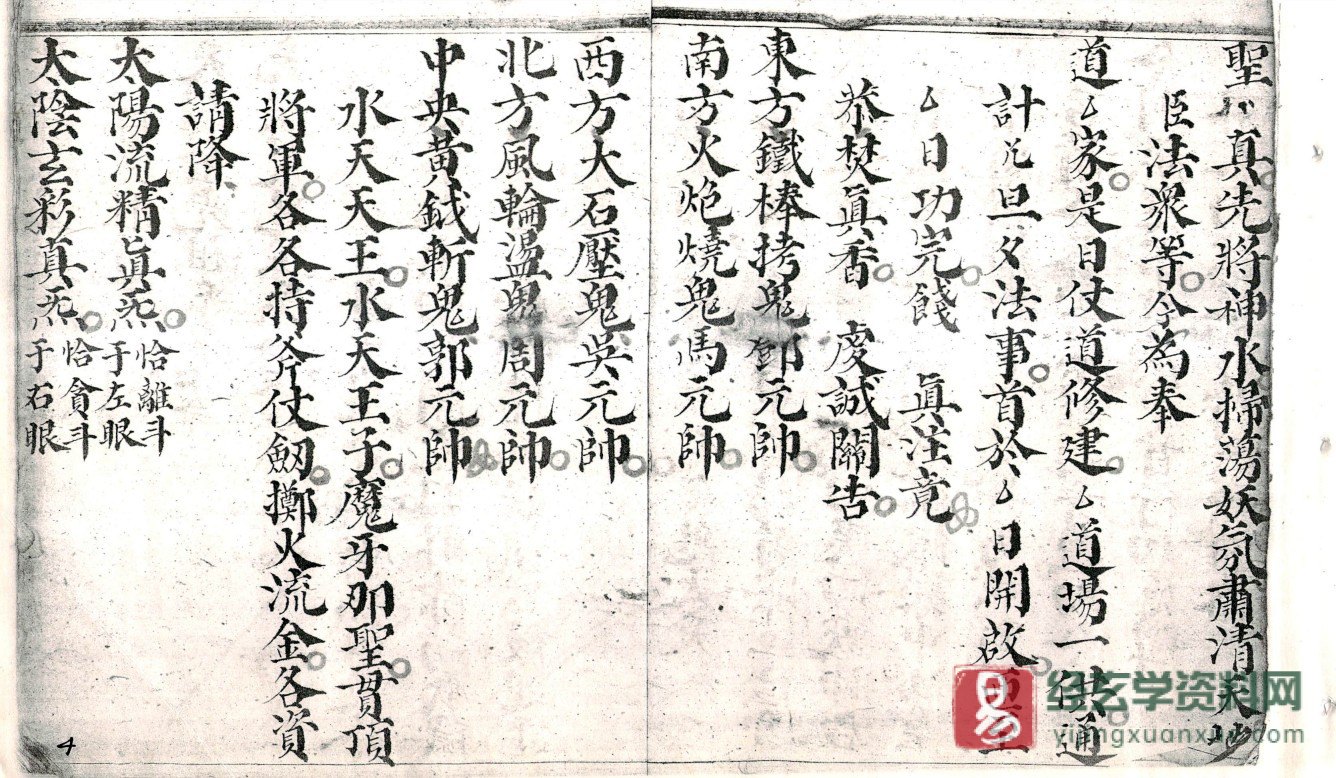 聖〻真先將神水掃蕩妖氛肅清天地
臣法眾等今為奉
道厶家是日仗道修建厶道場一供通
計几旦夕法事首於厶日開啟至
厶日功完餞 真注竟
恭焚真香 虔誠關告
東方鐵棒拷鬼鄧元帥
南方火炮燒鬼馬元帥
西方大石壓鬼吳元帥
北方風輪盪鬼周元帥
中央黃鉞斬鬼郭元帥
水天天王水天王子魔牙那聖貫頂
將軍各各持斧仗劔擲火流金各資
請降
太陽流精真炁恰離斗于左眼
太陰玄彩真炁恰貪斗于右眼
4
易
经玄学资料网
yijingxuanxue.com